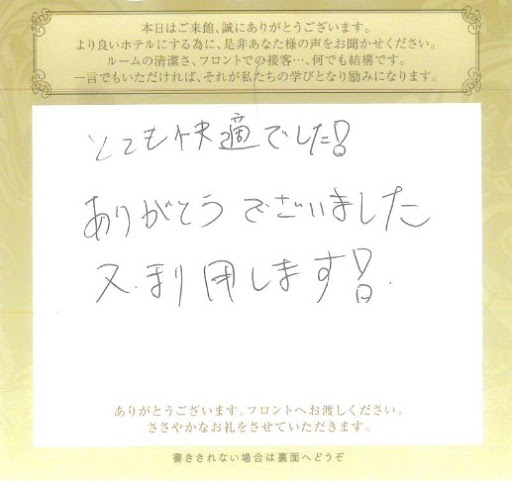 本日はご来館、誠にありがとうございます。
より良いホテルにする為に、是非あなた様の声をお聞かせください。
ルームの清潔さ、フロントでの接客…、何でも結構です。
一言でもいただければ、それが私たちの学びとなり励みになります。
とても快適でした!
ありがとうございました
又、利用します!
ありがとうございます。フロントへお渡しください。
ささやかなお礼をさせていただきます。
書ききれない場合は裏面へどうぞ